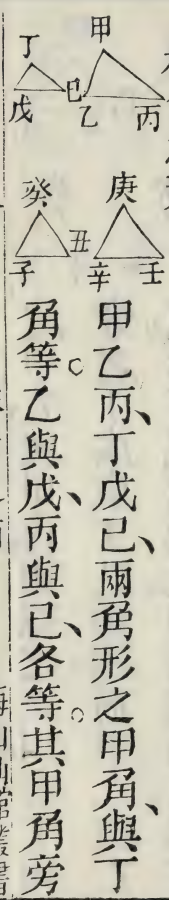 甲
乙 丙
丁
戊 巳
庚
辛 壬
癸
子 丑
甲乙丙、丁戊己、兩角形之甲角、與丁
角等。乙與戊、丙與己、各等。其甲角旁
海山仙館叢書